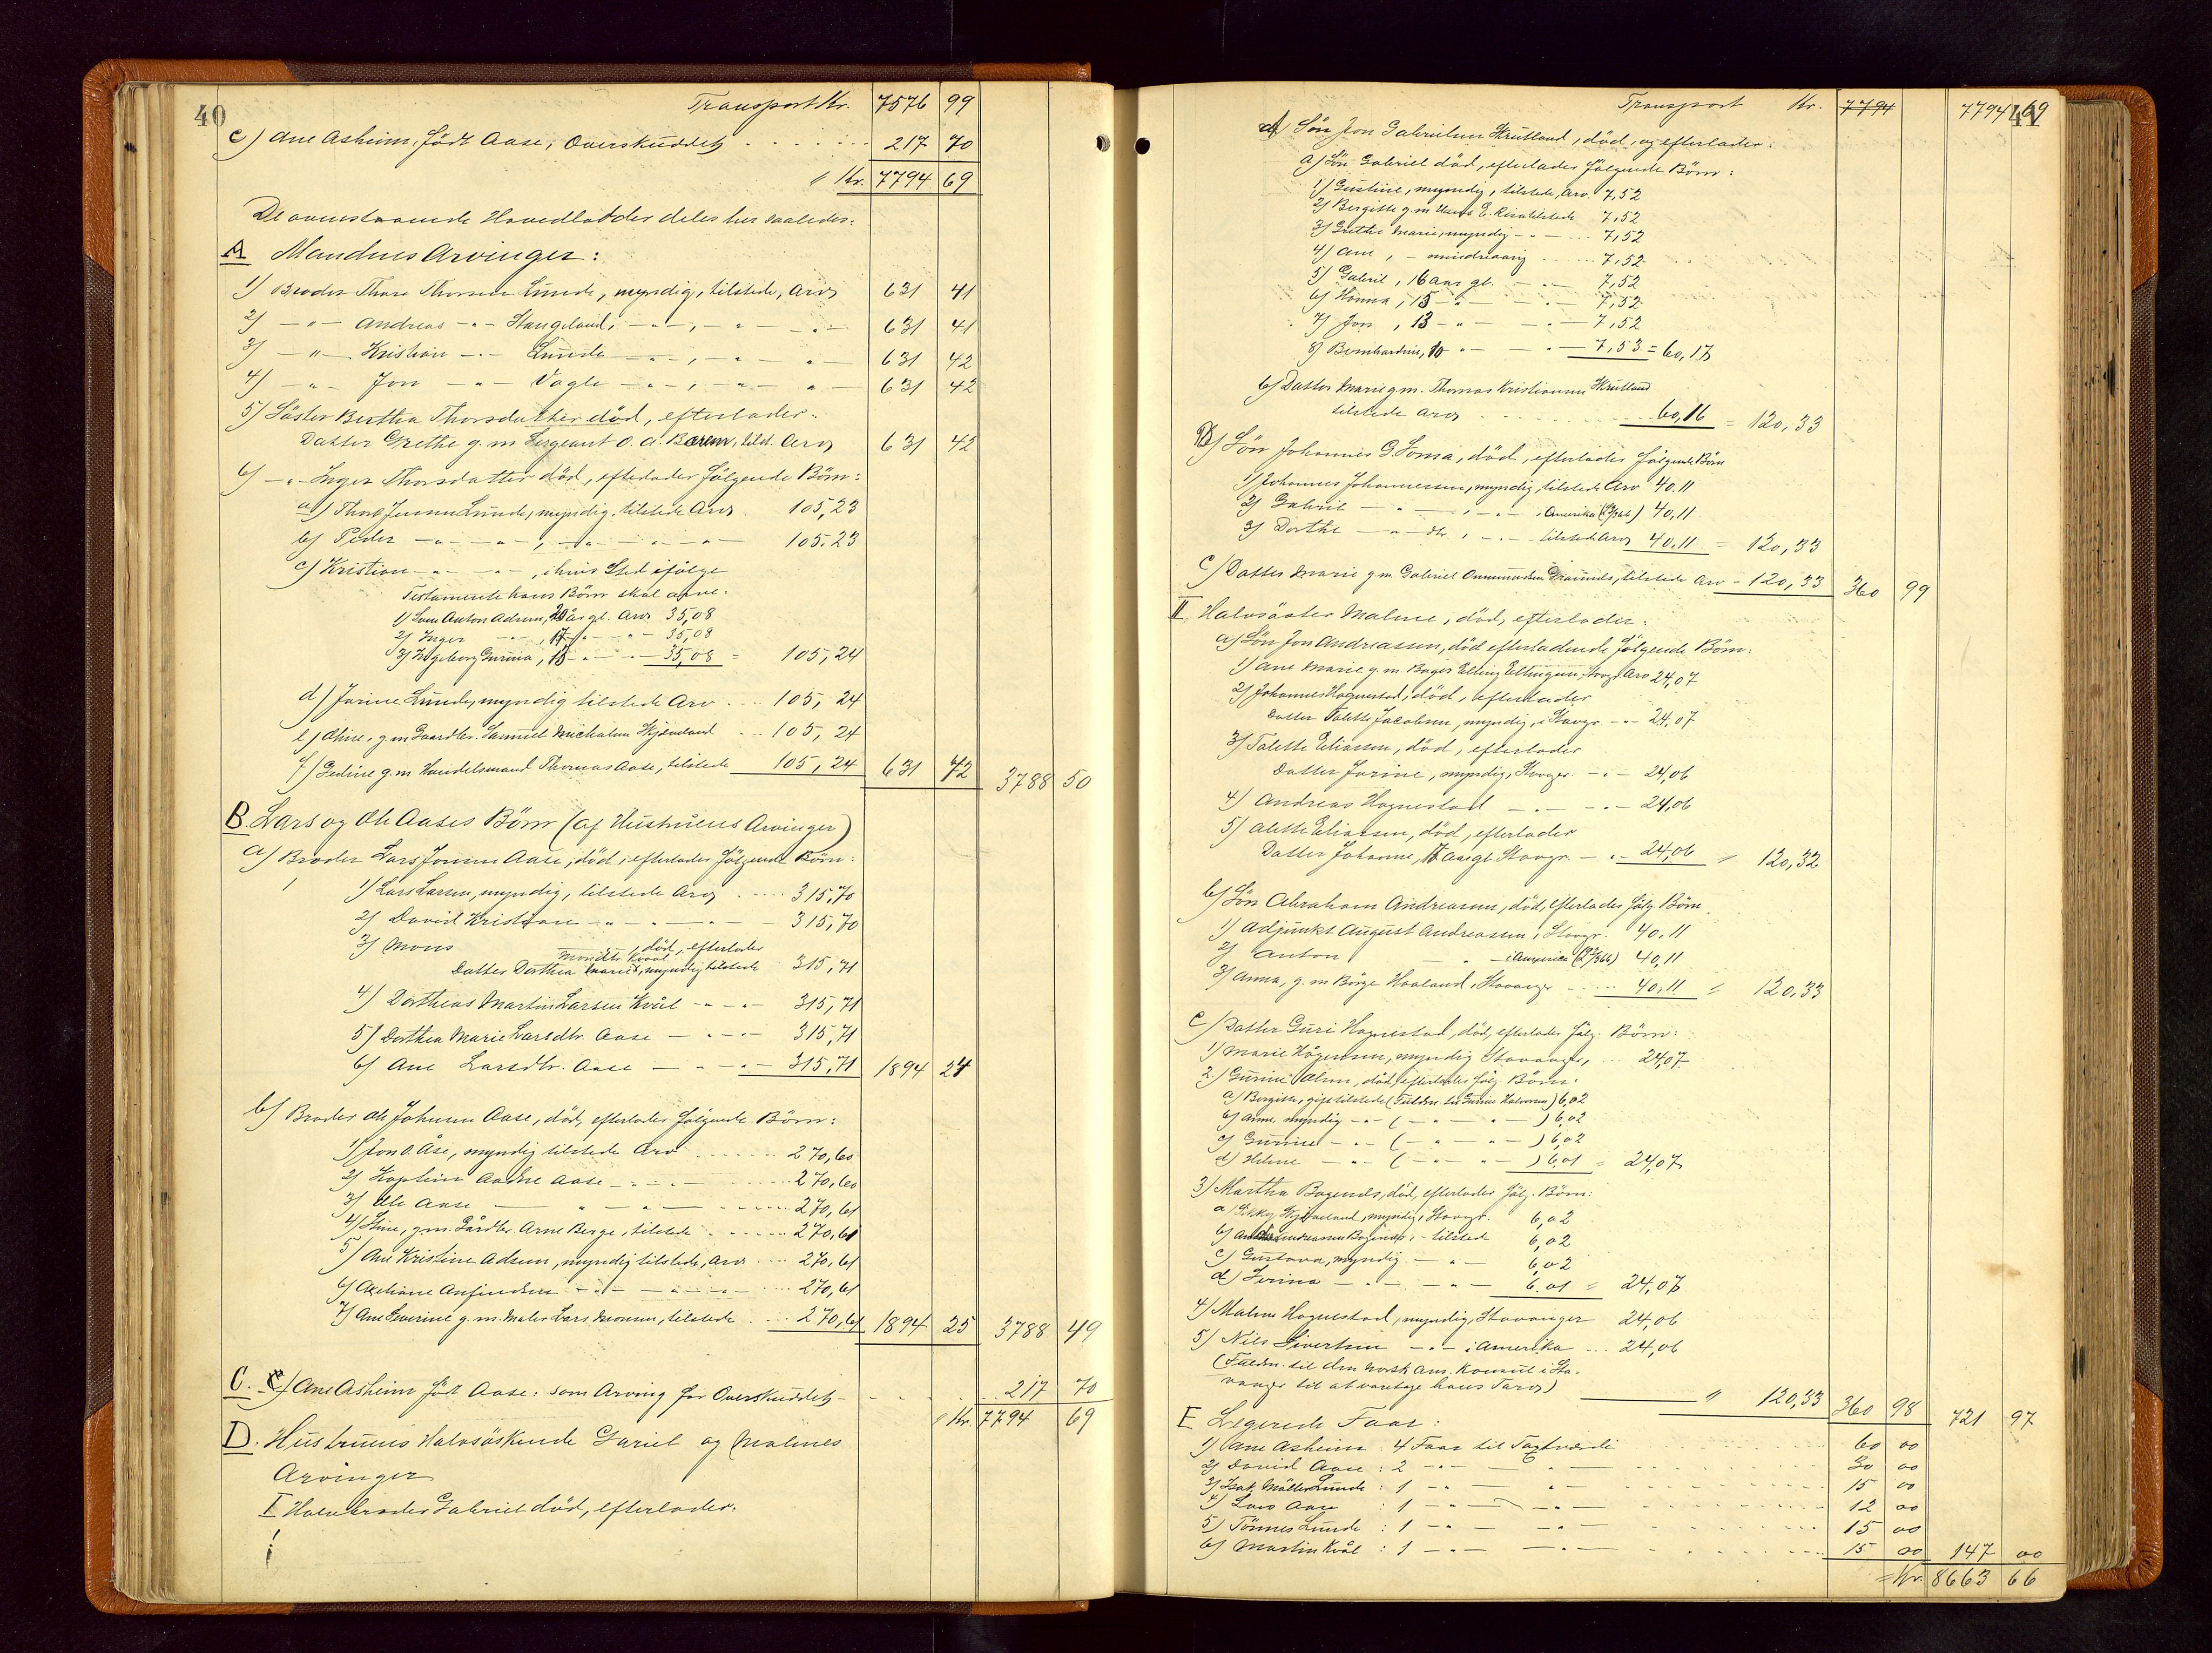 40
Transport Kr. 7576 99
c) Ane Asheim, født Aase, Overskuddet . . . . . 217 70
Kr. 7794 69
De ovenstaaende Hovedlodder deles her saaledes:
A Mandens Arvinger:
1) Broder Thore Thorsen Lunde, myndig, tilstede, Arv 631 41
2) — " — Andreas — " — Stangeland, — " —, — " — " — 631 41
3) — " — Kristian — " — Lunde — " —, — " — " 631 42
4) — " — Jon — " — Vagle — " —, — " — " — 631 42
5) Søster Bertha Thorsdatter død, efterlader:
Datter Grethe g. m. Sergeant O. A. Barem, tilst. Arv 631 42
6) — " — Inger Thorsdatter død, efterlader følgende Børn:
a) Thore Jensen Lunde, myndig, tilstede Arv 105,23
b) Peder — " — " —, — " — " — " — 105.23
c) Kristian — " — " —, i hvis Sted ifølge
Testamente hans Børn skal arve.
1) Sven Anton Adsen, 20 år gl. Arv 35,08
2) Inger — " —, 17 — " — " — 35,08
3) Ingeborg Gurina, 15 — " — " — 35,08 = 105,24
d) Jorine Lunde, myndig tilstede Arv . . . 105,24
e) Oline, g m Gaardbr. Samuel Michalsen Skjæveland . . . 105,24
f) Gedine g. m Handelsmand Thomas Aase, tilstede 105,24 631 72 3788 50
B. Lars og Ole Aases Børn (af Hustruens Arvinger)
a) Broder Lars Jonsen Aase, død, efterlader følgende Børn:
1) Lars Larsen, myndig, tilstede Arv . . . 315,70
2) David Kristian — " — " — " — 315,70
3) Mons — " —, død, efterlader
Monsdtr. Kvål
Datter Dorthea Marie, myndig tilstede 315,71
4) Dortheus Martin Larsen Kvål — " — " — 315,71
5) Dorthea Marie Larsdtr. Aase — " — " — 315,71
6) Ane Larsdtr. Aase — " — " — 315,71 1894 24
b) Broder Ole Johnsen Aase, død, efterlader følgende Børn:
1) Jon O. Åse, myndig tilstede Arv . . . 270,60
2) Kaptein Aadne Aase — " — " — . . . 270,60
3) Ole Aase — " — " — . . . 270,61
4) Stine, g. m. Gårdbr. Arne Berge, tilstede . . . 270,61
5) Ane Kristine Adsen, myndig tilstede, Arv . . . 270,61
6) Axeliane Anfindsen — " — " — " — . . . 270,61
7) Ane Severine g. m. Maler Lars Monsen, tilstede . . . 270,61 1894 25 3788 49
C. c) Ane Asheim født Aase: som Arving for Overskuddet — . . . 217 70
Kr. 7794 69
D. Hustruens Halvsøskende Gabriel og Malenes
Arvinger
I Halvbroder Gabriel død, efterlader:
41
Transport Kr. 7794 7794 69
A) Søn Jon Gabrielsen Skrutland, død, og efterlader:
a) Søn Gabriel død, efterlader følgende Børn:
1) Gustine, myndig, tilstede, Arv. 7,52
2) Bergitte g. m Hans E. Risa tilstede 7,52
3) Grethe Marie, myndig — " — . . . 7,52
4) Ane, — mindreaarig . . . 7,52
5) Gabriel, 16 aar gl. — " — 7,52
6) Hanna, 15 — " — — " — 7,52
7) Jon, 13 — " — — " — 7,52
8) Bernhardine, 10 " — — " — 7,53 = 60,17
b) Datter Marie g m. Thomas Kristiansen Skrutland
tilstede Arv . . . 60,16 = 120,33
B) Søn Johannes G. Soma, død, efterlader følgende Børn
1) Johannes Johannessen, myndig, tilstede Arv 40.11
2) Gabriel — " —, — " — i Amerika 40,11
3) Dorthe — " — dtr, — " — tilstede Arv 40.11 = 120,33
C) Datter Marie g m. Gabriel Ommundsen Graunes, tilstede Arv = 120,33 360 99
II. Halvsøster Malene, død, efterlader:
a) Søn Jon Andreassen, død efterladende følgende Børn:
1) Ane Marie g. m. Bager Elling Ellingsen, Stavgr. Arv 24,07
2) Johannes Hognestad, død, efterlader
Datter Talette Jacobsen, myndig, i Stavgr. — " — 24,07
3) Talette Eliassen, død, efterlader
Datter Jorine, myndig, Stavgr. — " — 24,06
4) Andreas Hognestad — " — " — 24,06
5) Alette Eliassen, død, efterlader
Datter Johanne, 17 aar gl. Stavgr. — " — 24,06 = 120,32
b) Søn Abraham Andreasen, død, efterlader følg. Børn.
1) Adjunkt August Andreassen, Stavgr. 40,11
2) Anton — " — i Amerika 40,11
3) Anna, g. m Børge Haaland, Stavanger . . . 40,11 = 120,33
c) Datter Guri Hognestad, død, efterlader følg. Børn:
1) Marie Hågensen, myndig Stavanger, . . . 24,07
2.) Gurine Olsen, død, efterlader følg. Børn.
a) Bergitte, gift tilstede (Fuldm. til Gurine Halvorsen) 6,02
b) Anne, myndig — " — ( — " — " — ) 6,02
c) Gurine — " — ( — " — " — ) 6,02
d) Helene — " — ( — " — " — ) 6,01 = 24,07
3) Martha Bogenes, død, efterlader følg. Børn:
a) Sikky Skjæveland, myndig, Stavgr. 6,02
b) Andreassen Bogenæs, — tilsted 6,02
c) Gustava, myndig — " — 6,02
d) Serina — " — — " — 6.01 = 24,07
4) Malene Hognestad, myndig, Stavanger 24,06
5) Nils Sivertsen — " — i Amerika . . . 24,06
(Fuldm. til den norsk Am. Konsul i Sta-
vanger til at varetage hans Tarv) " 120,33 360 98 721 97
E Legerede Faar:
1) Ane Asheim : 4 Faar til Taxtværdi . . . 60 00
2) David Aase : 2 — " — " — . . . 30 00
3) Isak Møller Lunde : 1 — " — " — . . . 15 00
4) Lars Aase : 1 — " — " — . . . 12 00
5) Tönnes Lunde : 1 — " — " — . . . 15 00
6) Martin Kvål : 1 — " — " — . . . 15 00 147 00
= Kr. 8663 66